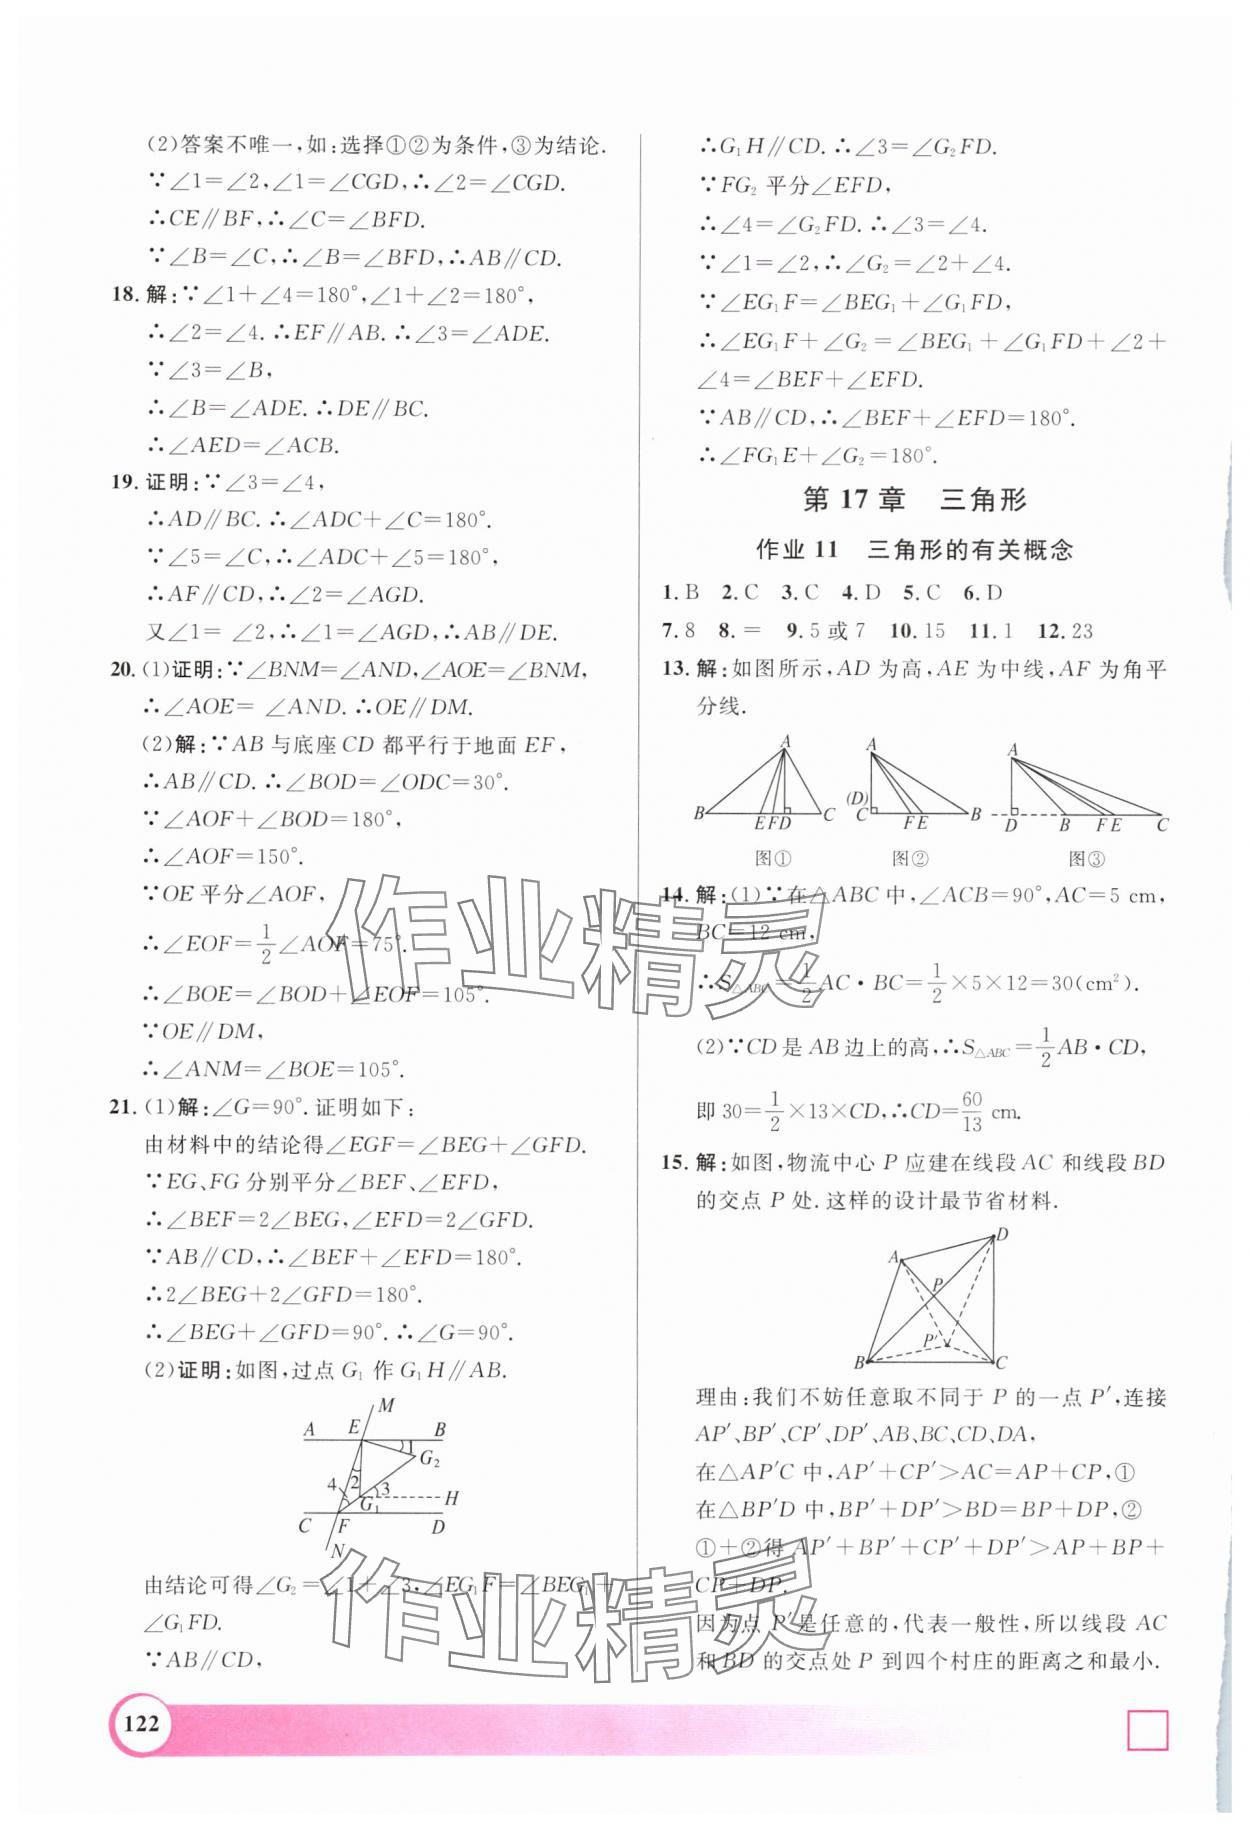 (2)答案不唯一,如:选择①②为条件,③为结论.
∵∠1=∠2,∠1=∠CGD,∴∠2=∠CGD.
∴CE∥BF,∴∠C=∠BFD.
∵∠B=∠C,∴∠B=∠BFD,∴AB∥CD.
18.解:∵∠1+∠4=180°,∠1+∠2=180°,
∴∠2=∠4.∴EF∥AB.∴∠3=∠ADE.
∵∠3=∠B,
∴∠B=∠ADE.∴DE∥BC.
∴∠AED=∠ACB.
19.证明:∵∠3=∠4,
∴AD∥BC.∴∠ADC+∠C=180°.
∵∠5=∠C,∴∠ADC+∠5=180°.
∴AF∥CD,∴∠2=∠AGD.
又∠1=∠2,∴∠1=∠AGD,∴AB∥DE.
20.(1)证明:∵∠BNM=∠AND,∠AOE=∠BNM,
∴∠AOE=∠AND.∴OE∥DM.
(2)解:∵AB与底座CD都平行于地面EF,
∴AB∥CD.∴∠BOD=∠ODC=30°.
∵∠AOF+∠BOD=180°,
∴∠AOF=150°.
∵OE平分∠AOF,
∴∠EOF=1/2∠AOF=75°.
∴∠BOE=∠BOD+∠EOF=105°.
∵OE∥DM,
∴∠ANM=∠BOE=105°.
21.(1)解:∠G=90°.证明如下:
由材料中的结论得∠EGF=∠BEG+∠GFD.
∵EG、FG分别平分∠BEF、∠EFD,
∴∠BEF=2∠BEG,∠EFD=2∠GFD.
∵AB∥CD,∴∠BEF+∠EFD=180°.
∴2∠BEG+2∠GFD=180°.
∴∠BEG+∠GFD=90°.∴∠G=90°.
(2)证明:如图,过点G₁作G₁H∥AB.
M
A E B
1
G₂
4 2 3
G₁ H
C F D
N
由结论可得∠G₂=∠1+∠3,∠EG₁F=∠BEG₁+
∠G₁FD.
∵AB∥CD,
∴G₁H∥CD.∴∠3=∠G₂FD.
∵FG₂平分∠EFD,
∴∠4=∠G₂FD.∴∠3=∠4.
∵∠1=∠2,∴∠G₂=∠2+∠4.
∵∠EG₁F=∠BEG₁+∠G₁FD,
∴∠EG₁F+∠G₂=∠BEG₁+∠G₁FD+∠2+
∠4=∠BEF+∠EFD.
∵AB∥CD,∴∠BEF+∠EFD=180°.
∴∠FG₁E+∠G₂=180°.
第17章 三角形
作业11 三角形的有关概念
1.B 2.C 3.C 4.D 5.C 6.D
7.8 8.= 9.5或7 10.15 11.1 12.23
13.解:如图所示,AD为高,AE为中线,AF为角平
分线.
A A A
B E F D C (D) C F E B D B F E C
图① 图② 图③
14.解:(1)∵在△ABC中,∠ACB=90°,AC=5 cm,
BC=12 cm,
∴S△ABC=1/2AC·BC=1/2×5×12=30(cm²).
(2)∵CD是AB边上的高,∴S△ABC=1/2AB·CD,
即30=1/2×13×CD,∴CD=60/13 cm.
15.解:如图,物流中心P应建在线段AC和线段BD
的交点P处.这样的设计最节省材料.
D
A
P
P′
B C
理由:我们不妨任意取不同于P的一点P′,连接
AP′、BP′、CP′、DP′、AB、BC、CD、DA,
在△AP′C中,AP′+CP′>AC=AP+CP,①
在△BP′D中,BP′+DP′>BD=BP+DP,②
①+②得AP′+BP′+CP′+DP′>AP+BP+
CP+DP.
因为点P′是任意的,代表一般性,所以线段AC
和BD的交点处P到四个村庄的距离之和最小.
作业精灵
作业精灵
122